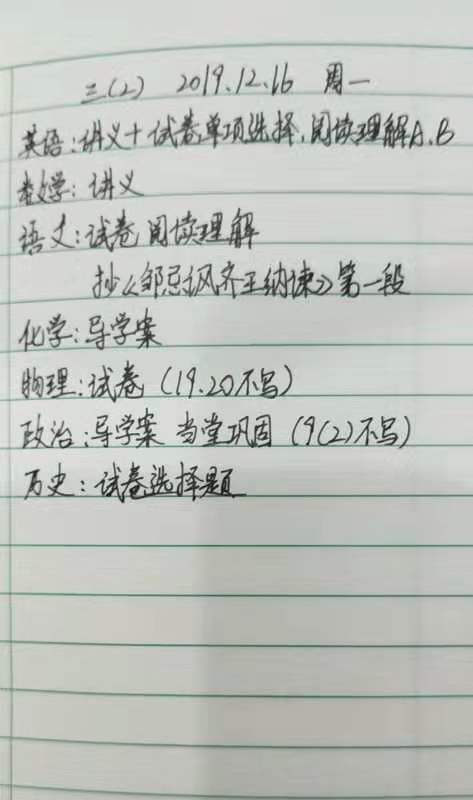 三(2) 2019.12.16 周一
英语:讲义+试卷,单项选择,阅读理解A.B
数学:讲义
语文:试卷 阅读理解
抄《邹忌讽齐王纳谏》第一段
化学:导学案
物理:试卷(19.20不写)
政治:导学案 当堂巩固(9(2)不写)
历史:试卷选择题